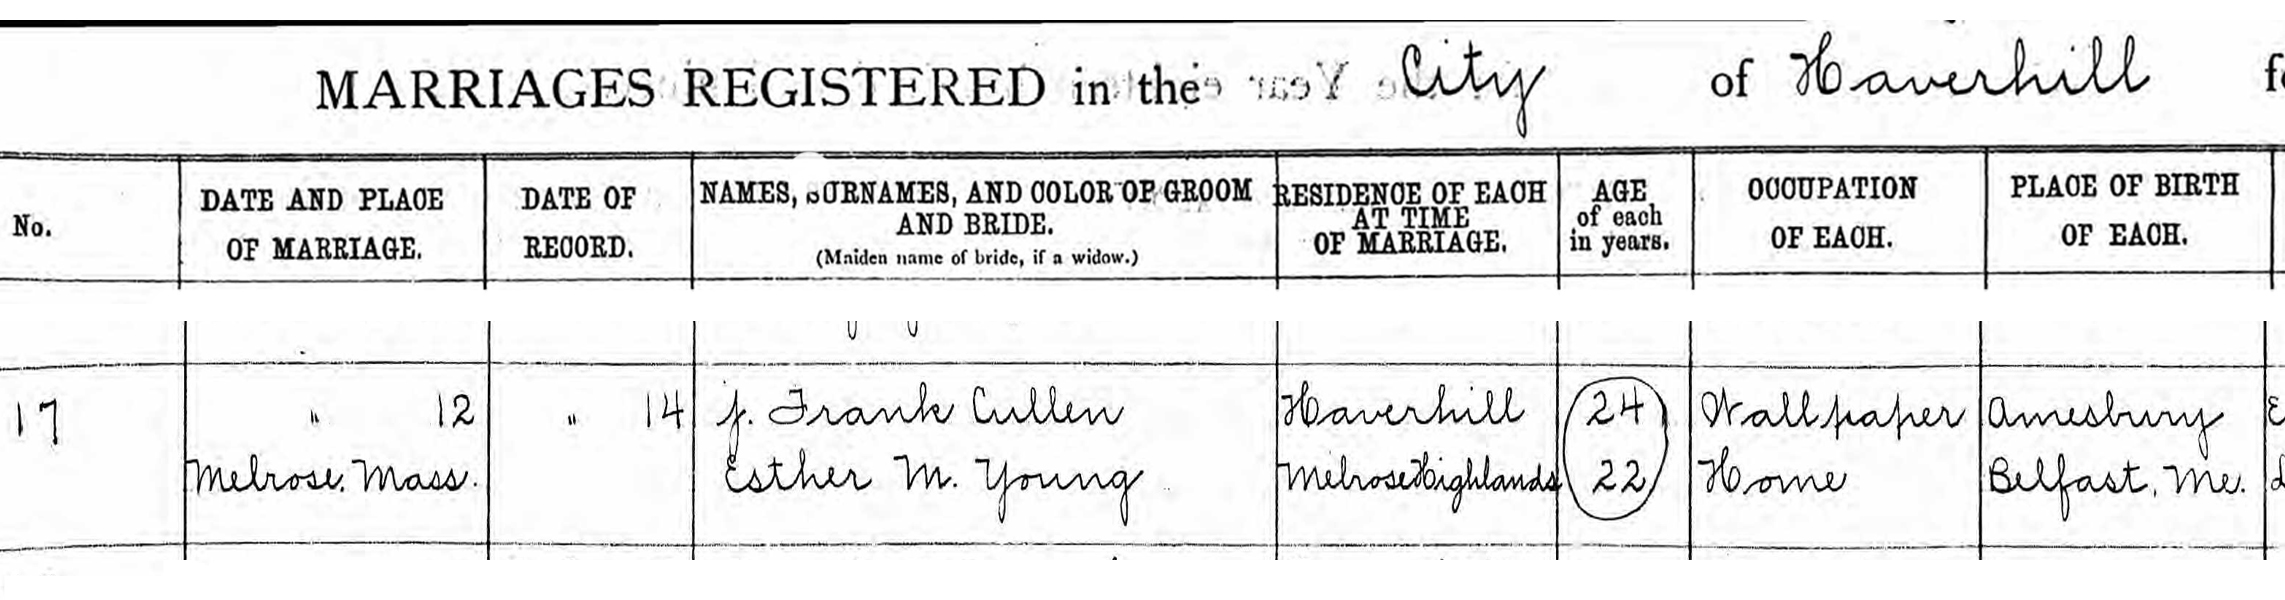 MARRIAGES REGISTERED in the City of Haverhill
No.
DATE AND PLACE
OF MARRIAGE.
DATE OF
RECORD.
NAMES, SURNAMES, AND COLOR OF GROOM
AND BRIDE.
(Maiden name of bride, if a widow.)
RESIDENCE OF EACH
AT TIME
OF MARRIAGE.
AGE
of each
in years.
OCCUPATION
OF EACH.
PLACE OF BIRTH
OF EACH.
17 " 12 " 14 J. Frank Cullen Haverhill 24 Wallpaper Amesbury
Melrose, Mass. Esther M. Young Melrose Highlands 22 Home Belfast, Me.